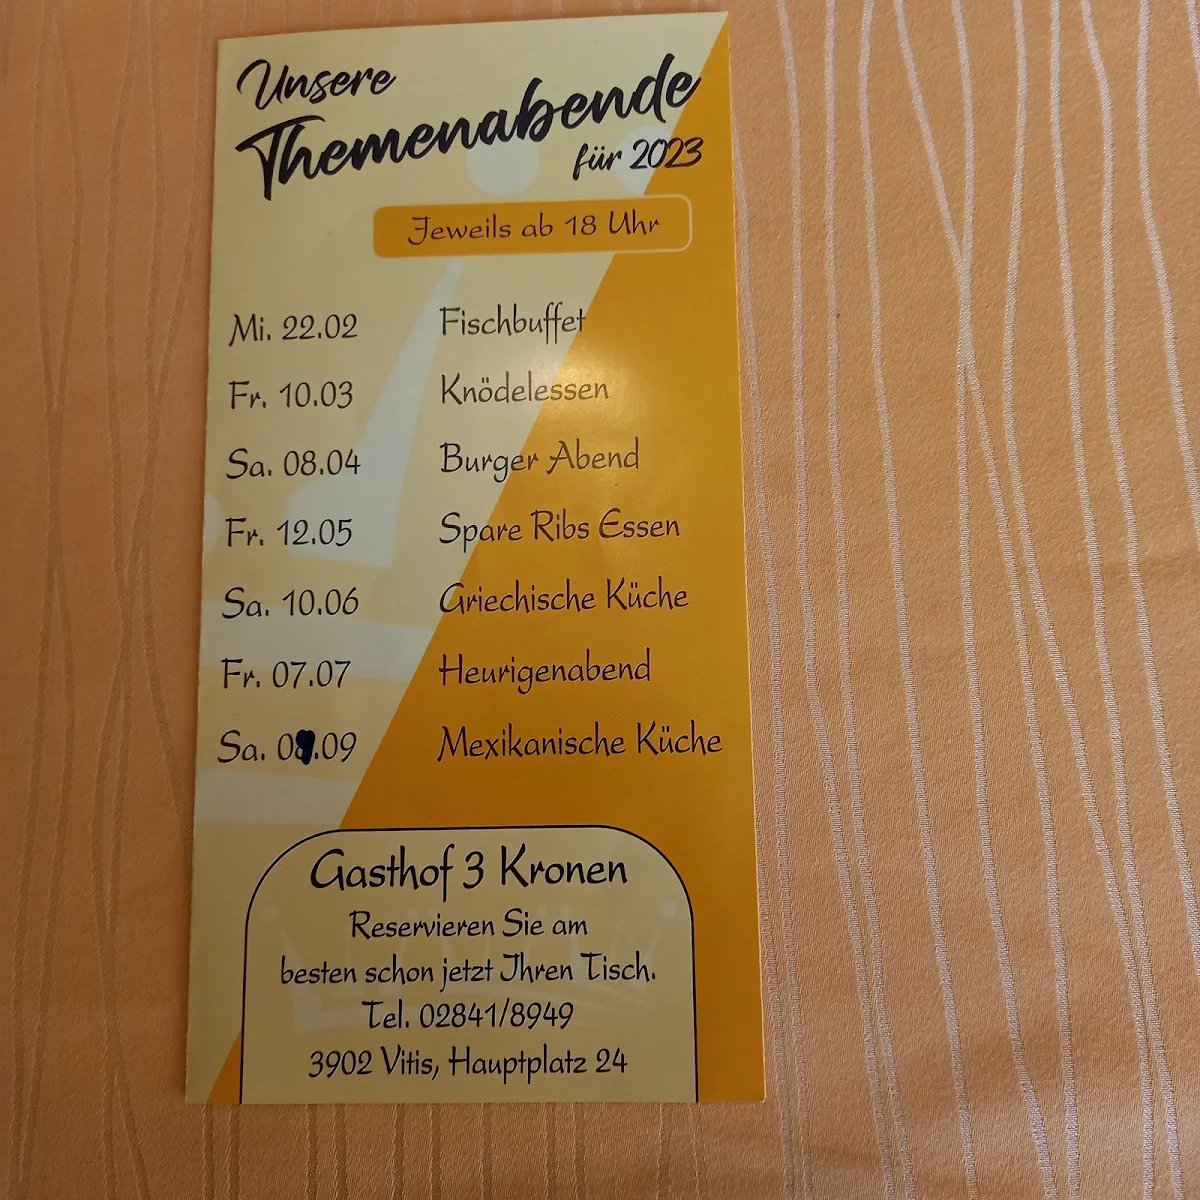 Unsere
Themenabende
für 2023
Jeweils ab 18 Uhr
Mi. 22.02 Fischbuffet
Fr. 10.03 Knödelessen
Sa. 08.04 Burger Abend
Fr. 12.05 Spare Ribs Essen
Sa. 10.06 Griechische Küche
Fr. 07.07 Heurigenabend
Sa. 09.09 Mexikanische Küche
Gasthof 3 Kronen
Reservieren Sie am
besten schon jetzt Ihren Tisch.
Tel. 02841/8949
3902 Vitis, Hauptplatz 24